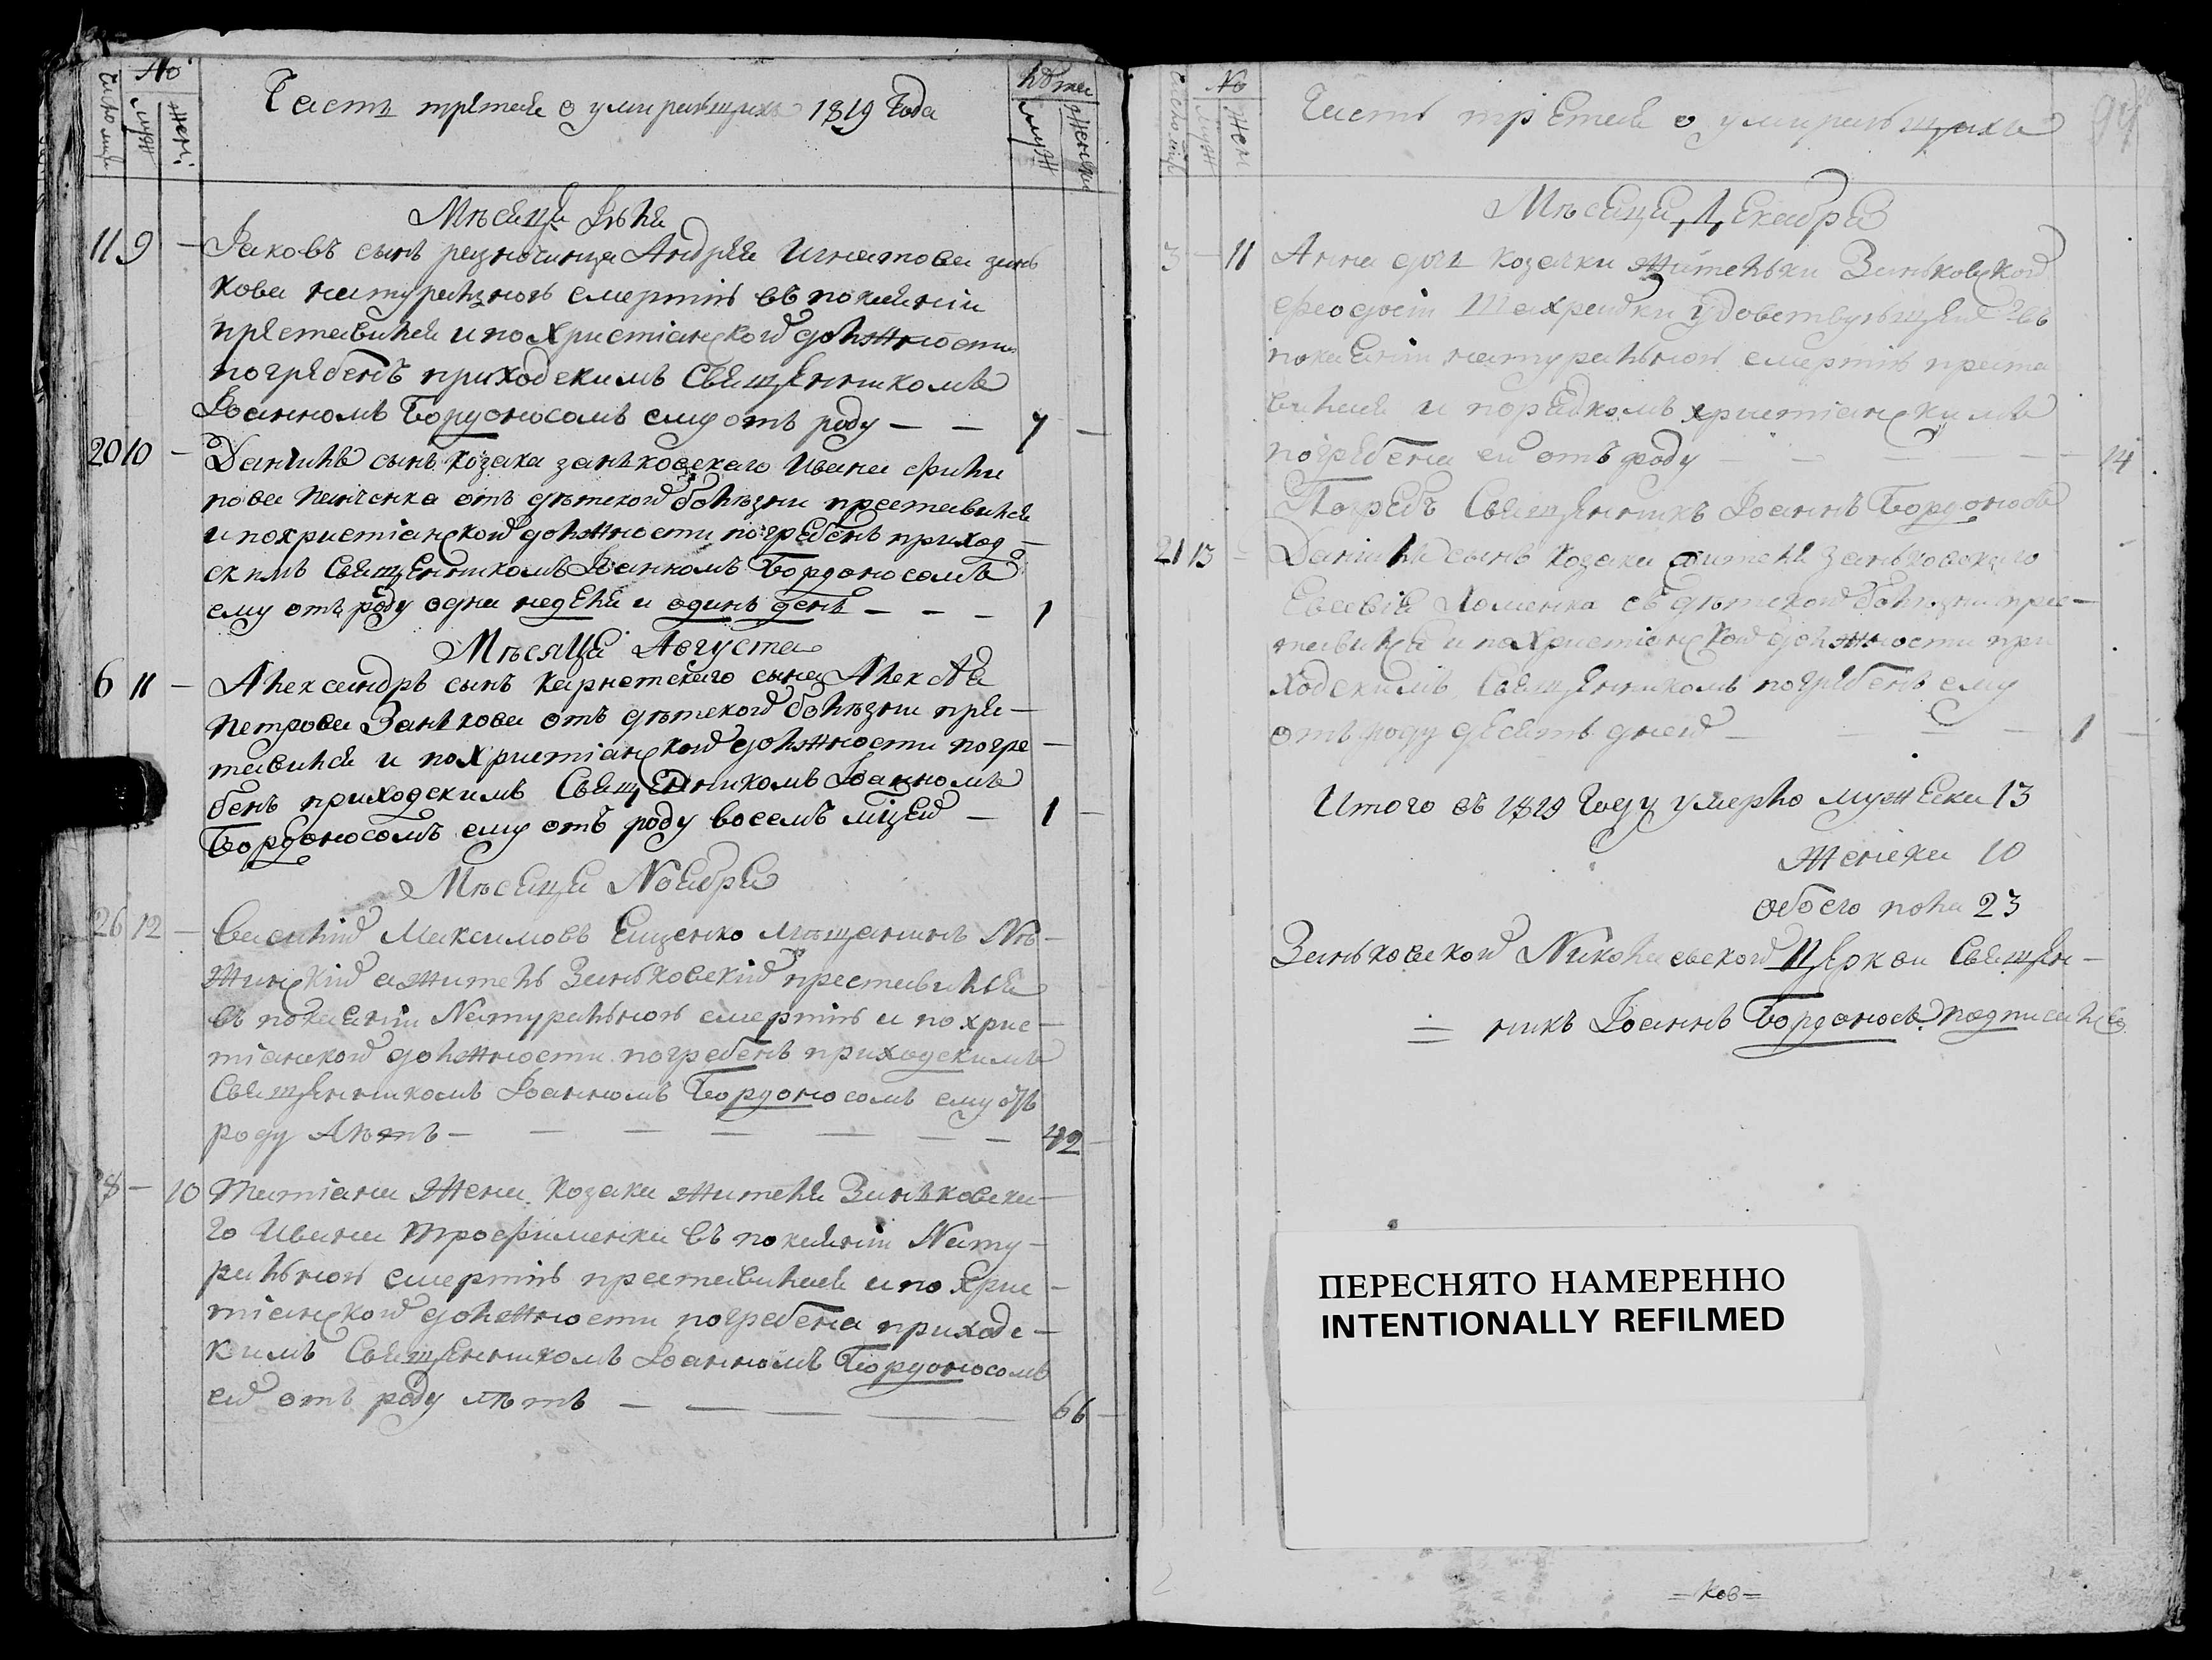 Число мцъ
No
муж
жен:
Часть третая о умирающихъ 1819 Года
лѣта
муж
женски
Мѣсяца Іюля
11 9 — Іаковъ сынъ разночинца Андрея Игнатова зинь
кова натуралною смертію въ покаяніи
преставился и по Христіанской должности
погребенъ приходскимъ Священникомъ
Іоанномъ Бордоносомъ ему отъ роду — — 7 —
20 10 — Даніилъ сынъ козака занковскаго Ивана Фили
пова от дѣтской болѣзни преставился
и по христіанской должности погребенъ приход —
скимъ Священникомъ Іоанномъ Бордоносомъ
ему отъ роду одна неделя и одинъ день — — — 1
Мѣсяца Августа
6 11 — Александръ сынъ сына Алексея
Петрова Занкова отъ дѣтской болѣзни пре —
ставился и по Христіанской должности погре —
бенъ приходскимъ Священникомъ Іоанномъ
Бордоносомъ ему отъ роду восемъ мцей — 1 —
Мѣсяца Ноября
26 12 — Василій Максимовъ Ященко мѣщанинъ Нѣ —
жинскій а житель Зинковскій преставился
въ покаяніи Натуральною смертію и по хрис —
тіанской должности погребенъ приходскимъ
Священникомъ Іоанномъ Бордоносомъ ему отъ
роду Лѣтъ — — — — — — — 42 —
28 — 10 Татіана Жена козака жителя Зинковска —
го Ивана Трофименка въ покаяніи Нату —
ральною смертію преставилася и по Хрис —
тіанской должности погребена приходс —
кимъ Священникомъ Іоанномъ Бордоносомъ
ей отъ роду лѣтъ — — — — 66 —
Число мцъ
No
муж
жен
Часть третая о умирающихъ
94
Мѣсяца Декабря
3 — 11 Анна дочь козачки жительки Зиньковской
Феодосіи удовствующей въ
покаяніи натуральною смертію преста
вилася и порядкомъ христіанскимъ
погребена ей отъ роду — — — — — 14
Погребъ Священникъ Іоаннъ Бордоносъ
21 13 — Даніилъ сынъ козака жителя занковскаго
Евсевія Ломенка съ дѣтской болѣзни прес —
тавился и по Христіанской должности при
ходскимъ Священникомъ погребенъ ему
отъ роду десять дней — — — — 1 —
Итого въ 1819 Году умерло мужеска 13
Женска 10
обоего пола 23
Зиньковской Николаевской Церкви Священ —
= никъ Іоаннъ Бордоносъ подписался
ПЕРЕСНЯТО НАМЕРЕННО
INTENTIONALLY REFILMED
= ков =